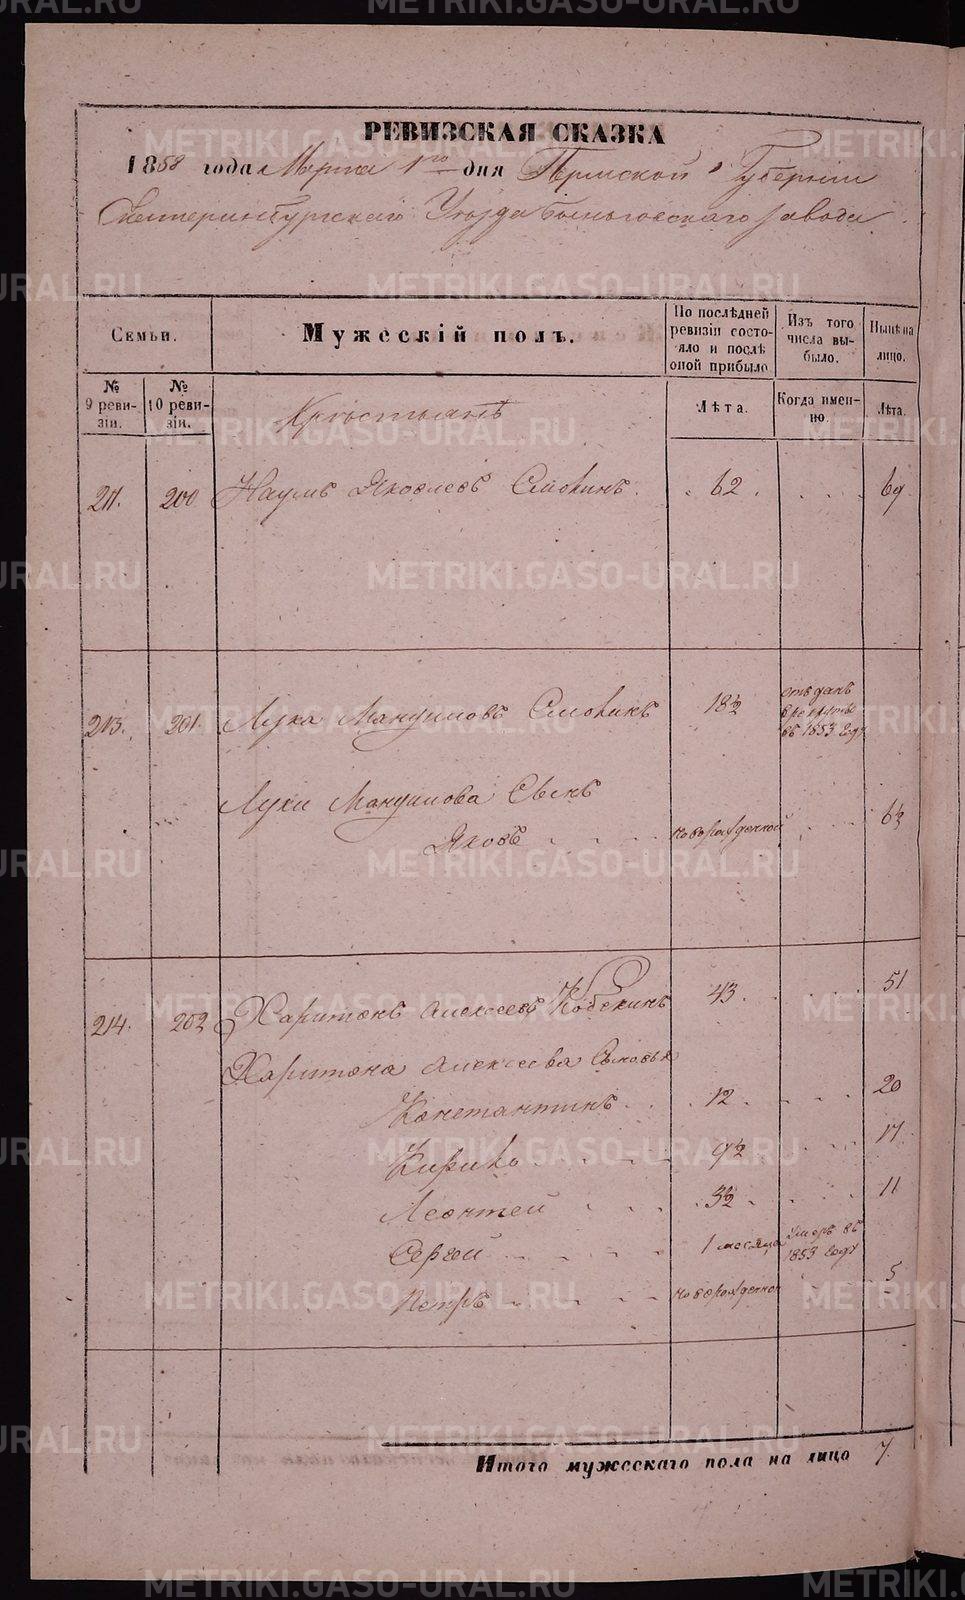 METRIKI.GASO-URAL.RU
РЕВИЗСКАЯ СКАЗКА
1858 года Марта 1го дня Пермской Губернии
Екатеринбургскаго Уезда Быньговскаго завода.
Семьи.
Мужескій полъ.
По послѣдней ревизіи состояло и послѣ оной прибыло
Изъ того числа выбыло.
Нынѣ на лицо.
№ 9 ревизіи.
№ 10 ревизіи.
Крестьянъ
Лѣта.
Когда именно.
Лѣта.
211. 200 Наумъ Яковлевъ 62 69
213. 201 Лука 18½ отъданъ в рекруты въ 1853 году
Луки Сынъ
Яковъ новорожденной 6½
214. 202 Харитонъ Алексеевъ Кобекинъ 43 51
Харитона Алексеева Сыновья
Константинъ 12 20
Кирило 9½ 17
Леонтей 3½ 11
Сергей 1 месяца умеръ въ 1853 году
Петръ новорожденной 5
Итого мужескаго пола на лицо 7